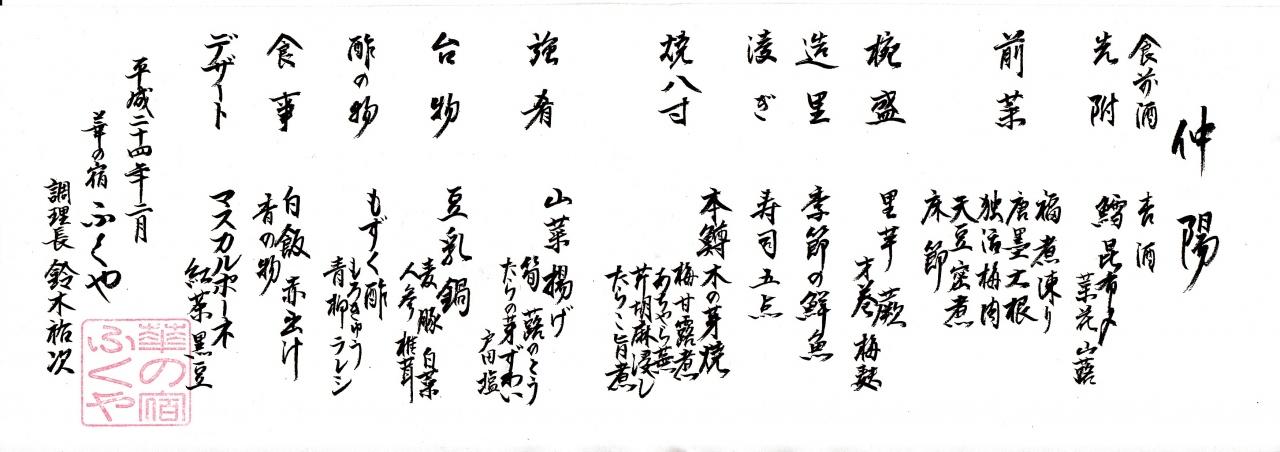 仲陽
食前酒 杏酒
先附 鱈昆布〆
菜花 山蕗
前菜 福煮凍り
唐墨大根
独活梅肉
天豆蜜煮
床節
椀盛 里芋 蕨 梅麩
才巻
造里 季節の鮮魚
凌ぎ 寿司五点
焼八寸 本鱒木の芽焼
梅甘露煮
あちゃら蕪
芹胡麻浸し
たらこ旨煮
強肴 山菜揚げ
筍 蕗のとう
たらの芽 ずわい
戸田塩
台物 豆乳鍋
麦豚 白菜
人参 椎茸
酢の物 もずく酢
もろきゅう
青柳 ラレシ
食事 白飯 赤出汁
香の物
デザート マスカルポーネ
紅茶 黒豆
平成二十四年二月
華の宿 ふくや
調理長 鈴木祐次
華の宿
ふくや